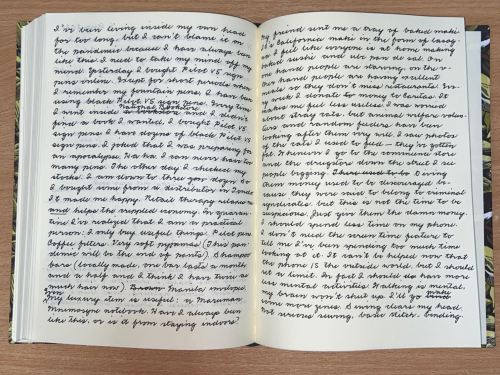 I've been living inside my own head
for too long, but I can't blame it on
the pandemic because I have always been
like this. I need to take my mind off my
mind. Yesterday I bought Pilot V5 sign
pens online. Except for short periods when
I remember my fountain pens, I have been
using black Pilot V5 sign pens. Every time
National Bookstore
I went inside a bookstore and I didn't
find a book I wanted, I bought Pilot V5
sign pens. I have dozens of black Pilot V5
sign pens. I joked that I was preparing for
an apocalypse. Ha ha I can never have too
many pens. The other day I checked my
stock: I am down to three pens. So
I bought some from a distributor in
It made me happy. Retail therapy relaxes me
and helps the crippled economy. In quaran-
tine I've realized that I am a practical
person: I only buy useful things. Pilot pens.
Coffee filters. Very soft pyjamas (This pan-
demic will be the end of pants). Shampoo
bars (locally made, one bar lasts a month
and a half and I think I have twice as
much hair now). Brown Manila envelopes.
Even
My luxury item is useful: a Maruman
Mnemosyne notebook. Have I always been
like this, or is it from staying indoors?
My friend sent me a tray of baked maki.
It's California maki in the form of lasag-
na. I feel like everyone is at home making
baked sushi and ube pan de sal. On
one hand people are starving, on the o-
ther hand people are having excellent
meals so they don't miss restaurants. Eve-
ry week I donate money to charities. It
makes me feel less useless. I was worried
about stray cats, but animal welfare volun-
teers and random feeders have been
looking after them very well. I saw photos
of the cats I used to feed – they've gotten
fat. Whenever I go to the convenience store
and the drugstore down the street I see
people begging. There used to be Giving
them money used to be discouraged be-
cause they were said to belong to criminal
syndicates, but this is not the time to be
suspicious. Just give them the damn money.
I should spend less time on my phone.
I don't need the screen time feature to
tell me I've been spending too much time
looking at it. It can't be helped now that
the phone is the outside world, but I should
set a limit. In fact I should do more
less mental activities. Walking is mental,
make
my brain won't shut up. I'll go
some more zines. Sewing clears my head.
Not serious sewing, basic stuff. binding.